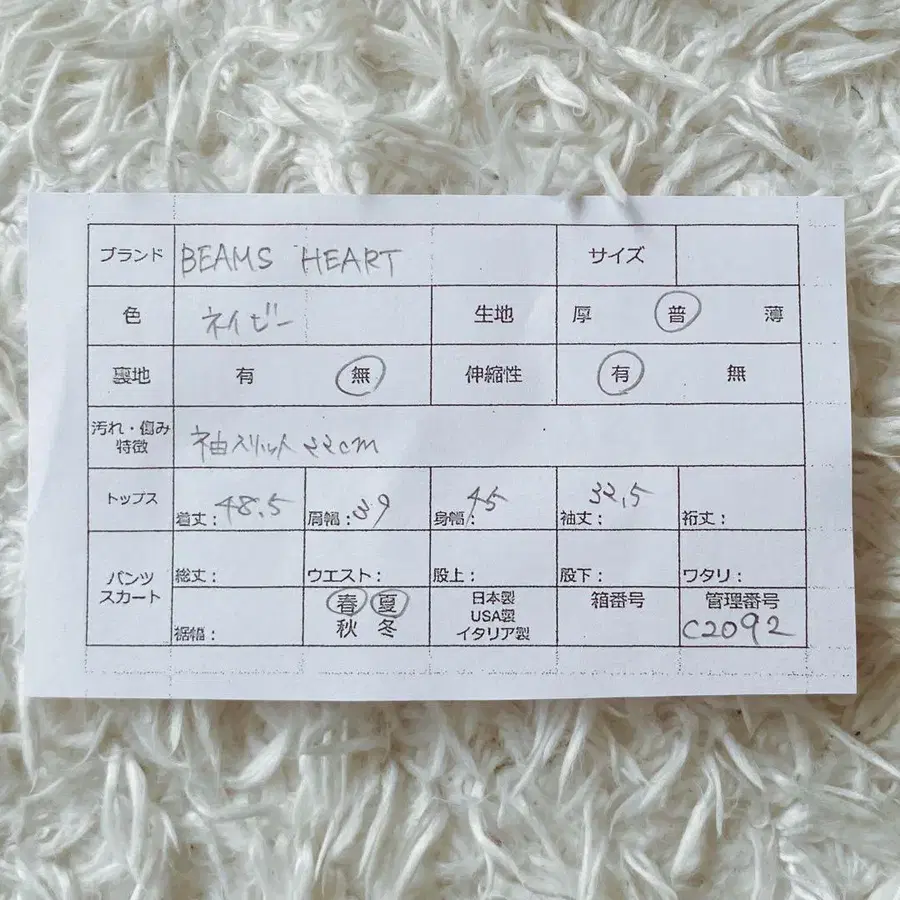 ブランド BEAMS HEART サイズ
色 ネイビー 生地 厚 普 薄
裏地 有 無 伸縮性 有 無
汚れ・傷み
特徴 袖スリット 22cm
トップス 着丈：48.5 肩幅：39 身幅：45 袖丈：32.5 裄丈：
パンツ
スカート 総丈： ウエスト：股上： 股下： ワタリ：
裾幅： 春 夏
秋 冬 日本製
USA製
イタリア製 箱番号 管理番号
C2092